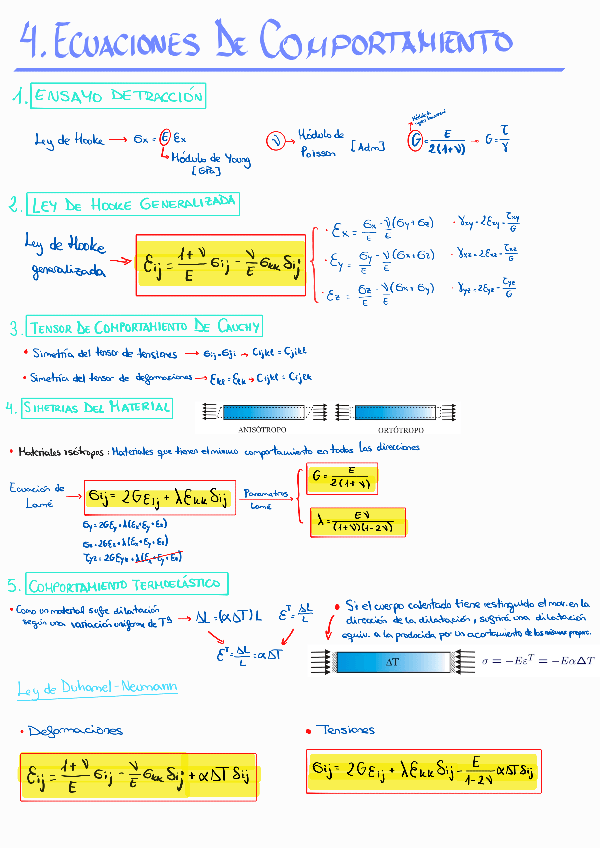 4. ECUACIONES DE COMPORTAMIENTO
1. ENSAYO DE TRACCIÓN
Ley de Hooke → σx = E εx
Módulo de Young
[GPa]
ν → Módulo de Poisson [Adm]
G = E / 2(1+ν) → G = τ / γ
2. LEY DE HOOKE GENERALIZADA
Ley de Hooke generalizada → εij = (1+ν)/E σij - ν/E σkk δij
• εx = σx/E - ν/E (σy + σz) • γxy = 2εxy = τxy/G
• εy = σy/E - ν/E (σx + σz) • γxz = 2εxz = τxz/G
• εz = σz/E - ν/E (σx + σy) • γyz = 2εyz = τyz/G
3. TENSOR DE COMPORTAMIENTO DE CAUCHY
• Simetría del tensor de tensiones → σij = σji → Cijkl = Cjikl
• Simetría del tensor de deformaciones → εkl = εlk → Cijkl = Cijlk
4. SIMETRIAS DEL MATERIAL
ANISÓTROPO
ORTÓTROPO
• Materiales isótropos: Materiales que tienen el mismo comportamiento en todas las direcciones
Ecuación de Lamé → σij = 2Gεij + λεkk δij
Parametros Lamé
G = E / 2(1+ν)
λ = Eν / (1+ν)(1-2ν)
σy = 2Gεy + λ(εx + εy + εz)
σz = 2Gεz + λ(εx + εy + εz)
τyz = 2Gεyz + λ(εx + εy + εz)
5. COMPORTAMIENTO TERMOELÁSTICO
• Como un material sufre dilatación
según una variación uniforme de Tª → ΔL = (αΔT) L εᵀ = ΔL/L
εᵀ = ΔL/L = αΔT
• Si el cuerpo calentado tiene restinguido el mov. en la
dirección de la dilatación, sufrirá una dilatación
equiv. a la producida por un acortamiento de las mismas propor.
ΔT
σ = −Eεᵀ = −EαΔT
Ley de Duhamel-Neumann
• Deformaciones
εij = (1+ν)/E σij - ν/E σkk δij + αΔT δij
• Tensiones
σij = 2Gεij + λεkk δij - E/(1-2ν) αΔT δij